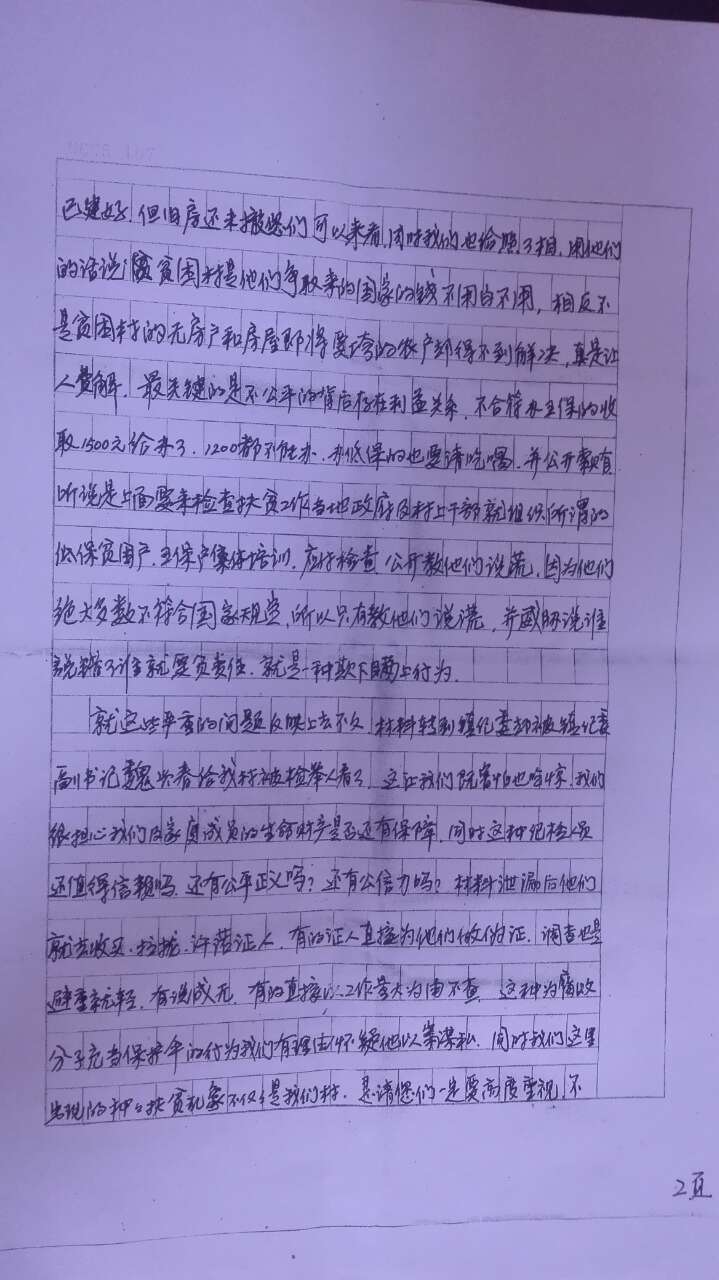 已建好，但旧房还未撤您们可以来看，同时我们也给照了相，用他们
的话说：该贫困村是他们争取来的国家的钱不用白不用，相反不
是贫困村的无房户和房屋即将要垮的农户却得不到解决，真是让
人费解，最关键的是不公平的背后存在利益关系，不合符办五保的收
取1500元给办了，1200都不能办，办低保的也要请吃喝，并公开索贿
听说是上面要来检查扶贫工作当地政府及村上干部就组织所谓的
低保贫困户，五保户集体培训，应付检查，公开教他们说谎，因为他们
绝大多数不符合国家规定，所以只有教他们说谎，并威胁说谁
说错了谁就要负责任，就是一种欺下瞒上行为。
就这些严重的问题反映上去不久，材料转到镇纪委却被镇纪委
副书记魏兴春给我村被检举人看了，这让我们既害怕也吃惊，我们
很担心我们及家庭成员的生命财产是否还有保障，同时这种纪检人员
还值得信赖吗，还有公平正义吗？还有公信力吗？材料泄漏后他们
就去收买、拉拢、许诺证人，有的证人直接为他们做伪证，调查也是
避重就轻，有说成无，有的直接以工作量大为由不查，这种为腐败
分子充当保护伞的行为我们有理由怀疑他以案谋私，同时我们这里
出现的种种扶贫乱象不仅仅是我们村，恳请您们一定要高度重视，不
2页